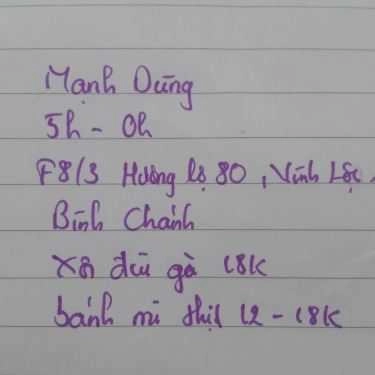 Mạnh Dũng
5h - 0h
F8/3 Hương lộ 80, Vĩnh Lộc,
Bình Chánh
Xôi đùi gà 18K
bánh mì thịt 12 - 18K